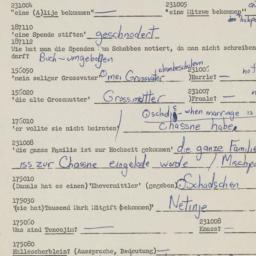 231004 231005
"eine (A)lije bekommen" "eine Mitzwe bekommen"
187110
'eine Spende stiften' geschnodert
187112
Wie hat man die Spenden am Schabbes notiert, da man nicht schreiben
darf? Buch - umgeboffen
155050 231007
'mein seliger Grossvater' mei Grossvater Harrle?
155020 231007
'die alte Grossmutter' Grossmotter Fraale?
when marriage is
176010
'er wollte sie nicht heiraten' Chassne habe
231008
'die ganze Familie ist zur Hochzeit gekommen' die ganze Famili
iss zur Chassne eingelade worde / Mischpo
175010
(Damals hat es einen) 'Ehevermittler' (gegeben) Schadschen
175030
'sie hat) Tausend Mark Mitgift bekommen' Netinje
175060 231008
Was sind Tenoojim? Knass?
175080
Hülleseherblein? (Aussprache, Bedeutung)